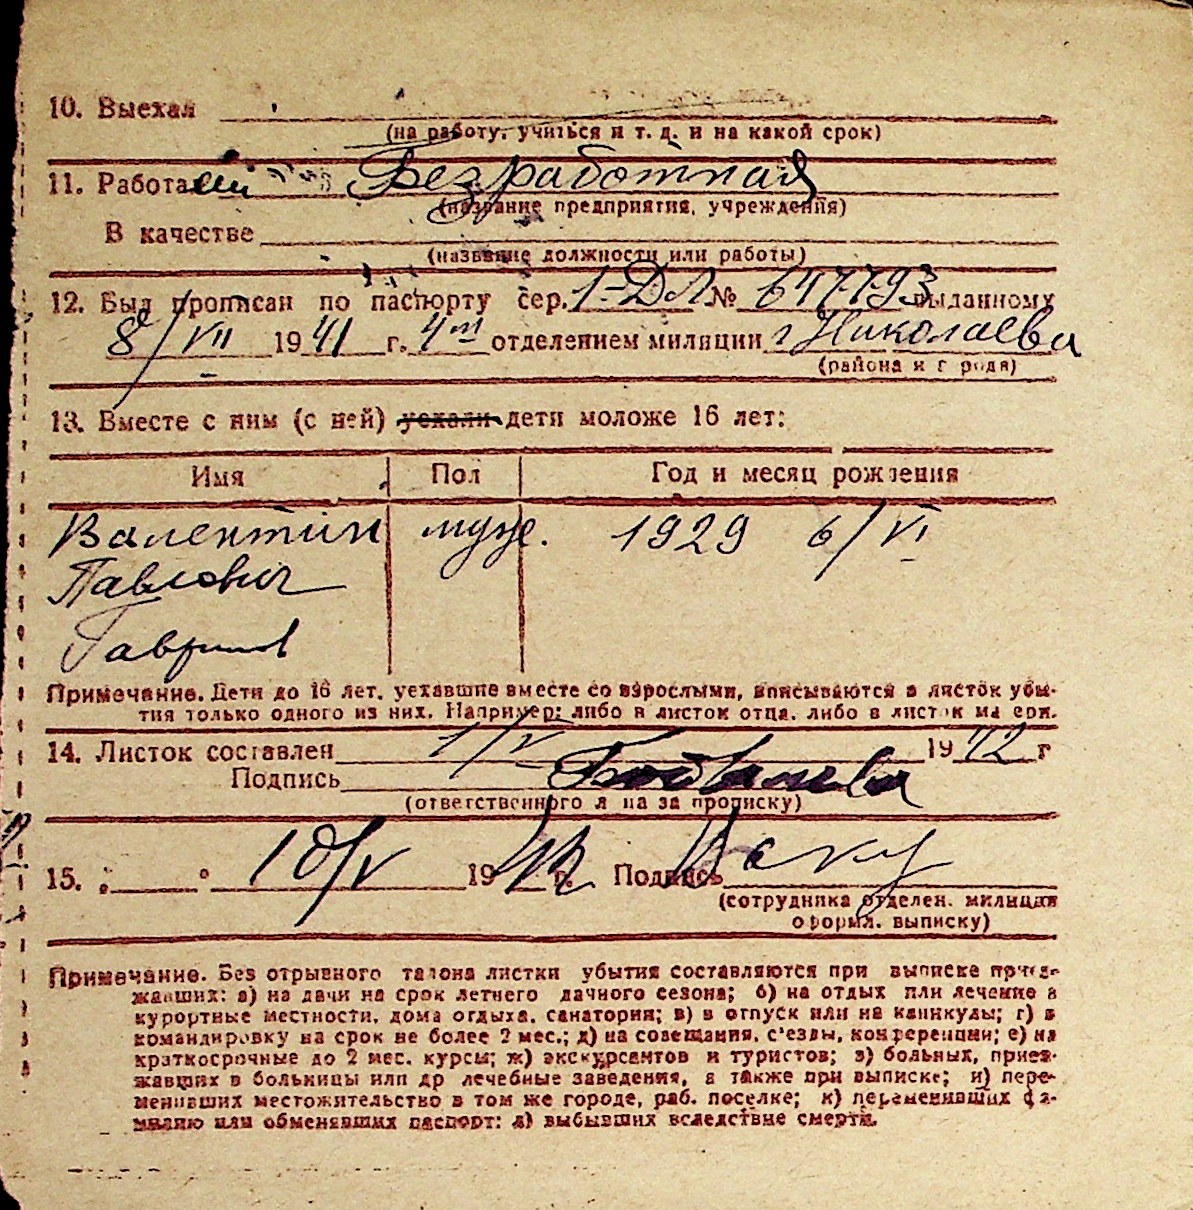 10. Выехал
(на работу, учиться и т. д. и на какой срок)
11. Работа Безработная
(название предприятия, учреждения)
В качестве
(название должности или работы)
12. Был прописан по паспорту сер. 1-ДЛ № 647793 выданному
8/VII 1941 г. 4м отделением милиции г Николаева
(района и г рода)
13. Вместе с ним (с ней) уехали дети моложе 16 лет:
Имя Пол Год и месяц рождения
Валентин муж. 1929 6/VI
Павлович
Гаврилов
Примечание. Дети до 16 лет, уехавшие вместе со взрослыми, вписываются в листок убы-
тия только одного из них. Например: либо в листок отца, либо в листок матери.
14. Листок составлен 1/V 1942 г
Подпись
(ответственного лица за прописку)
15. " " 10/V 1942 г. Подпись
(сотрудника отделен. милиции
оформл. выписку)
Примечание. Без отрывного талона листки убытия составляются при выписке приез-
жавших: а) на дачи на срок летнего дачного сезона; б) на отдых или лечение в
курортные местности, дома отдыха, санатории; в) в отпуск или на каникулы; г) в
командировку на срок не более 2 мес.; д) на совещания, с'езды, конференции; е) на
краткосрочные до 2 мес. курсы; ж) экскурсантов и туристов; з) больных, приез-
жавших в больницы или др лечебные заведения, а также при выписке; и) пере-
менивших местожительство в том же городе, раб. поселке; к) переменивших фа-
милию или обменявших паспорт; л) выбывших вследствие смерти.